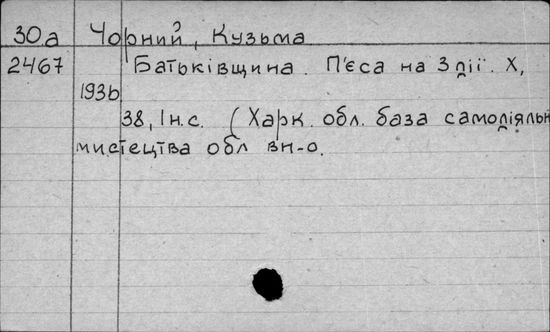 30а Чорний, Кузьма
2467 Батьківщина. П'єса на 3 дії. Х,
1936
38, Ін.с. (Харк. обл. база самодіяльн
мистецтва обл вн-о.